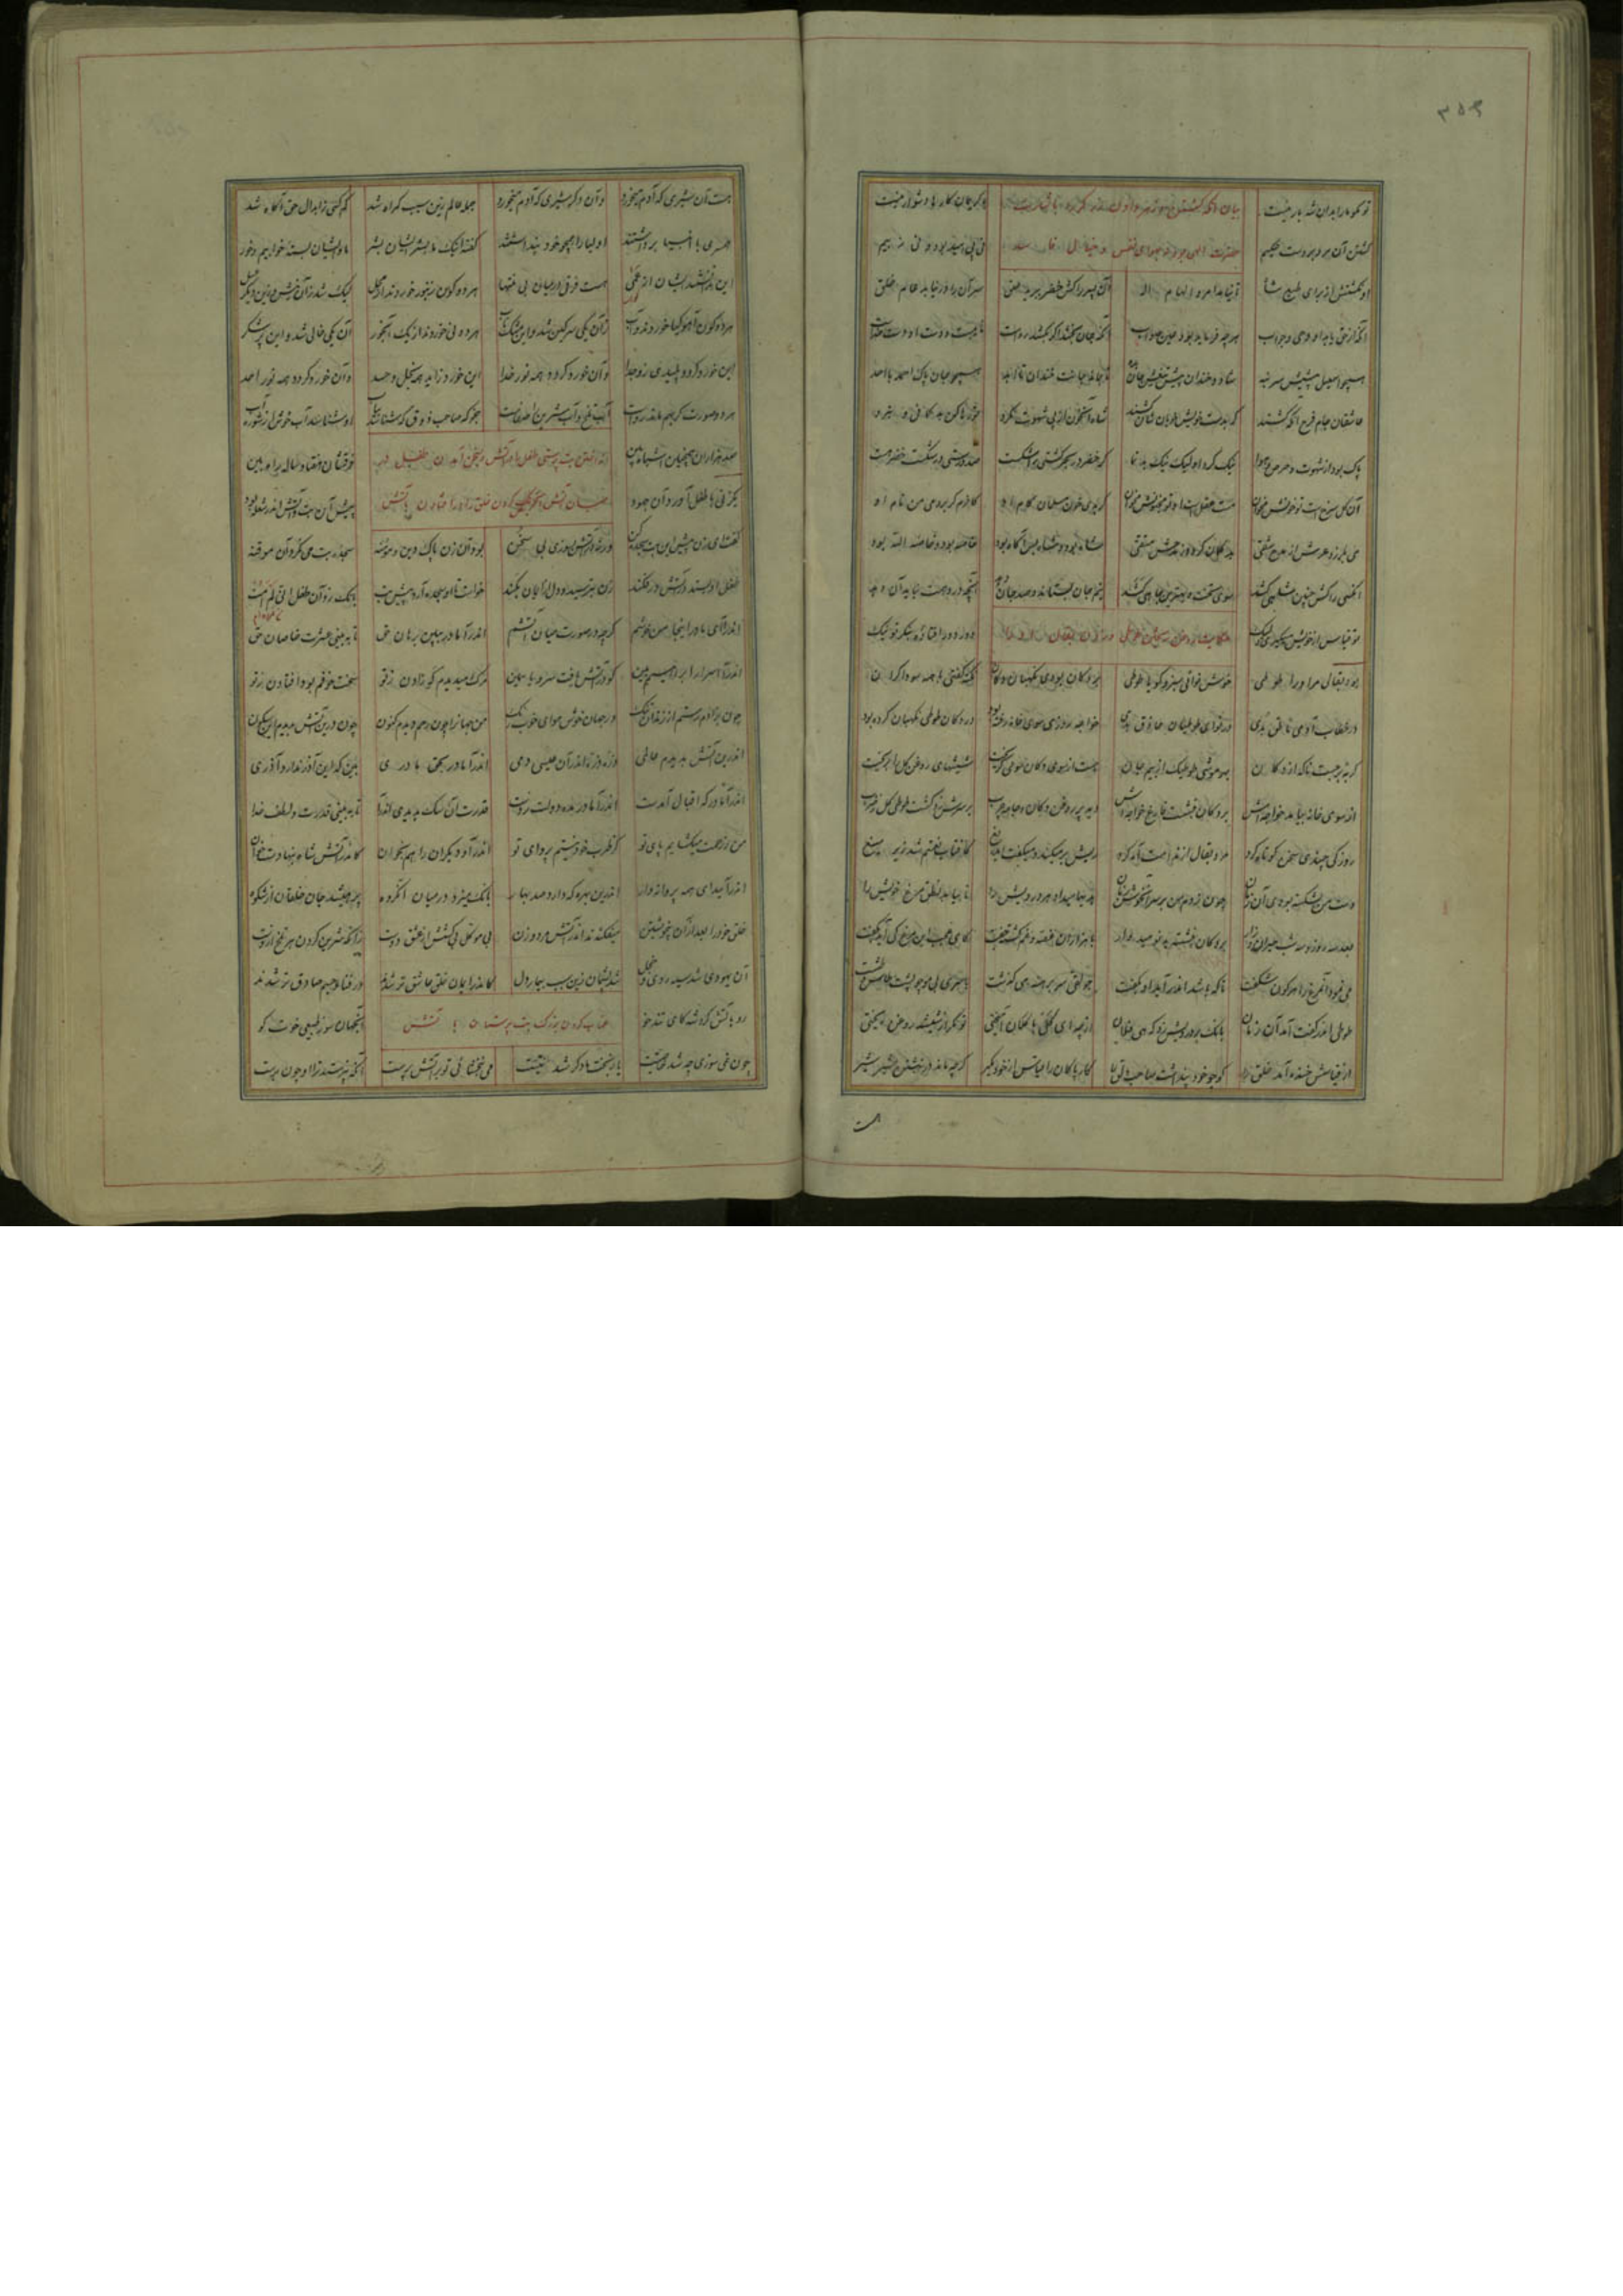 ۳۵۹
تو مگو ما را بدان شه بار نیست با کریمان کارها دشوار نیست
بیان آنکه کشتن مرد زرگر
کشتن آن مرد بر دست حکیم نی پی امید بود و نی ز بیم
حضرت الهی بود نه بهوای نفس و خیال
او نکشتش از برای طبع شاه تا نیامد امر و الهام اله آن پسر را کش خضر ببرید حلق سر آن را درنیابد عام خلق
آنکه از حق یابد او وحی و جواب هر چه فرماید بود عین صواب آنکه جان بخشد اگر بکشد رواست نایبست و دست او دست خداست
همچو اسمعیل پیشش سر بنه شاد و خندان پیش تیغش جان بده تا بماند جانت خندان تا ابد همچو جان پاک احمد با احد
عاشقان جام فرح آنکه کشند که بدست خویش خوبان شان کشند شاه آن خون از پی شهوت نکرد
پاک بود از شهوت و حرص و هوا نیک کرد او لیک نیک بد نما گر خضر در بحر کشتی را شکست صد درستی در شکست خضر هست
آن گل سرخست تو خونش مخوان مست عقلست او تو مجنونش مخوان گر بدی خون مسلمان کام او کافرم گر بردمی من نام او
می بلرزد عرش از مدح شقی بد گمان گردد ز مدحش متقی شاه بود و شاه بس آگاه بود خاصه بود و خاصه الله بود
آنکسی را کش چنین شاهی کشد سوی تخت و بهترین جاهی کشد نیم جان بستاند و صد جان دهد آنچه در وهمت نیاید آن دهد
تو قیاس از خویش میگیری ولیک دور دور افتاده بنگر تو نیک
بود بقالی مر او را طوطی خوش نوای سبز و گویا طوطی بر دکان بودی نگهبان دکان نکته گفتی با همه سوداگران
در خطاب آدمی ناطق بدی در نوای طوطیان حاذق بدی خواجه روزی سوی خانه رفته بود در دکان طوطی نگهبان کرده بود
گربه برجست ناگه از دکان بهر موشی طوطیک از بیم جان جست از سوی دکان سوی گریخت شیشهای روغن گل را بریخت
از سوی خانه بیامد خواجه اش بر دکان بنشست فارغ خواجه وش دید پر روغن دکان و جامه چرب بر سرش زد گشت طوطی کل ز ضرب
روزکی چندی سخن کوتاه کرد مرد بقال از ندامت آه کرد ریش بر میکند و میگفت ای دریغ کافتاب نعمتم شد زیر میغ
دست من بشکسته بودی آن زمان چون زدم من بر سر آن خوش زبان هدیها میداد هر درویش را تا بیابد نطق مرغ خویش را
بعد سه روز و سه شب حیران و زار بر دکان بنشسته بد نومیدوار
می نمود آن مرغ را هر گون شگفت جولقی سر برهنه می گذشت با سر بی مو چو پشت طاس و طشت
طوطی اندر گفت آمد آن زمان بانگ بر درویش زد که هی فلان از چه ای کل با کلان آمیختی تو مگر از شیشه روغن ریختی
از قیاسش خنده آمد خلق را کو چو خود پنداشت صاحب دلق را کار پاکان را قیاس از خود مگیر گر چه ماند در نبشتن شیر شیر
هست
هست آن شیری که آدم میخورد و آن دگر شیری که آدم میخورد جمله عالم زین سبب گمراه شد کم کسی ز ابدال حق آگاه شد
همسری با انبیا برداشتند اولیا را همچو خود پنداشتند گفته اینک ما بشر ایشان بشر ما و ایشان بسته خوابیم و خور
این ندانستند ایشان از عمی هست فرقی در میان بی منتها هر دو گون زنبور خوردند از محل لیک شد زان نیش و زین دیگر عسل
هر دو گون آهو گیا خوردند و آب زان یکی سرگین شد و زین مشک ناب هر دو نی خوردند از یک آبخور آن یکی خالی شد و این پر شکر
صد هزاران همچنین اشباه بین فرقشان هفتاد ساله راه بین
این خورد گردد پلیدی زو جدا و آن خورد گردد همه نور خدا این خورد زاید همه بخل و حسد و آن خورد گردد همه نور احد
هر دو صورت گر بهم ماند رواست آب تلخ و آب شیرین را صفاست جز که صاحب ذوق که شناسد بیاب او شناسد آب خوش از شوره آب
یک زنی با طفل آورد آن جهود پیش آن بت و آتش اندر شعله بود
گفت ای زن پیش این بت سجده کن ورنه در آتش بسوزی بی سخن بود آن زن پاک دین و مومنه سجده بت می نکرد آن موقنه
طفل ازو بستد در آتش در فکند زن بترسید و دل از ایمان بکند خواست تا او سجده آرد پیش بت بانگ زد آن طفل انی لم امت
اندرآ ای مادر اینجا من خوشم گر چه در صورت میان آتشم اندرآ مادر ببین برهان حق تا ببینی عشرت خاصان حق
اندرآ اسرار ابراهیم بین کو در آتش یافت سرو و یاسمین مرگ میدیدم گه زادن ز تو سخت خوفم بود افتادن ز تو
چون بزادم رستم از زندان تنگ در جهان خوش هوای خوب رنگ من جهان را چون رحم دیدم کنون چون درین آتش بدیدم این سکون
اندرین آتش بدیدم عالمی ذره ذره اندر آن عیسی دمی اندرآ مادر بحق مادری بین که این آذر ندارد آذری
اندرآ مادر که اقبال آمدست اندرآ مادر مده دولت ز دست قدرت آن سگ بدیدی اندرآ تا ببینی قدرت و لطف خدا
من ز رحمت میکشایم پای تو کز طرب خود نیستم پروای تو اندرآ و دیگران را هم بخوان کاندر آتش شاه بنهادست خوان
اندرآیید ای همه پروانه وار اندرین بهره که دارد صد بهار بانگ میزد در میان آن گروه پر همیشد جان خلقان از شکوه
خلق خود را بعد از آن بیخویشتن میفکندند اندر آتش مرد و زن بی موکل بی کشش از عشق دوست زانکه شیرین کردن هر تلخ ازوست
آن یهودی شد سیه روی و خجل شد پشیمان زین سبب بیمار دل کاندر ایمان خلق عاشق تر شدند در فنای جسم صادق تر شدند
رو بآتش کرد شه کای تندخو آن جهان سوز طبیعی خوت کو
چون نمی سوزی چه شد خاصیتت یا ز بخت ما دگر شد نیتت می نبخشایی تو بر آتش پرست آنکه نپرستد ترا او چون برست